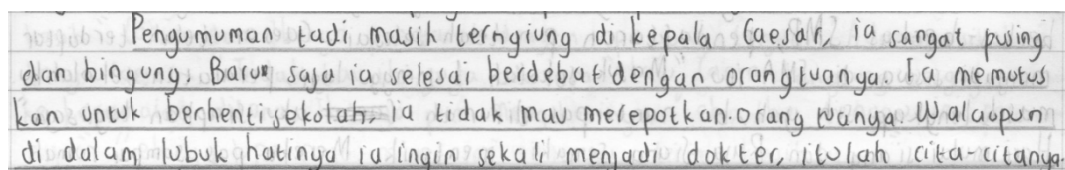 Pengumuman tadi masih terngiung di kepala Caesar, ia sangat pusing
dan bingung. Barus saja ia selesai berdebat dengan orangtuanya. Ia memutus
kan untuk berhenti sekolah, ia tidak mau merepotkan orang tuanya. Walaupun
di dalam lubuk hatinya ia ingin sekali menjadi dokter, itulah cita-citanya.